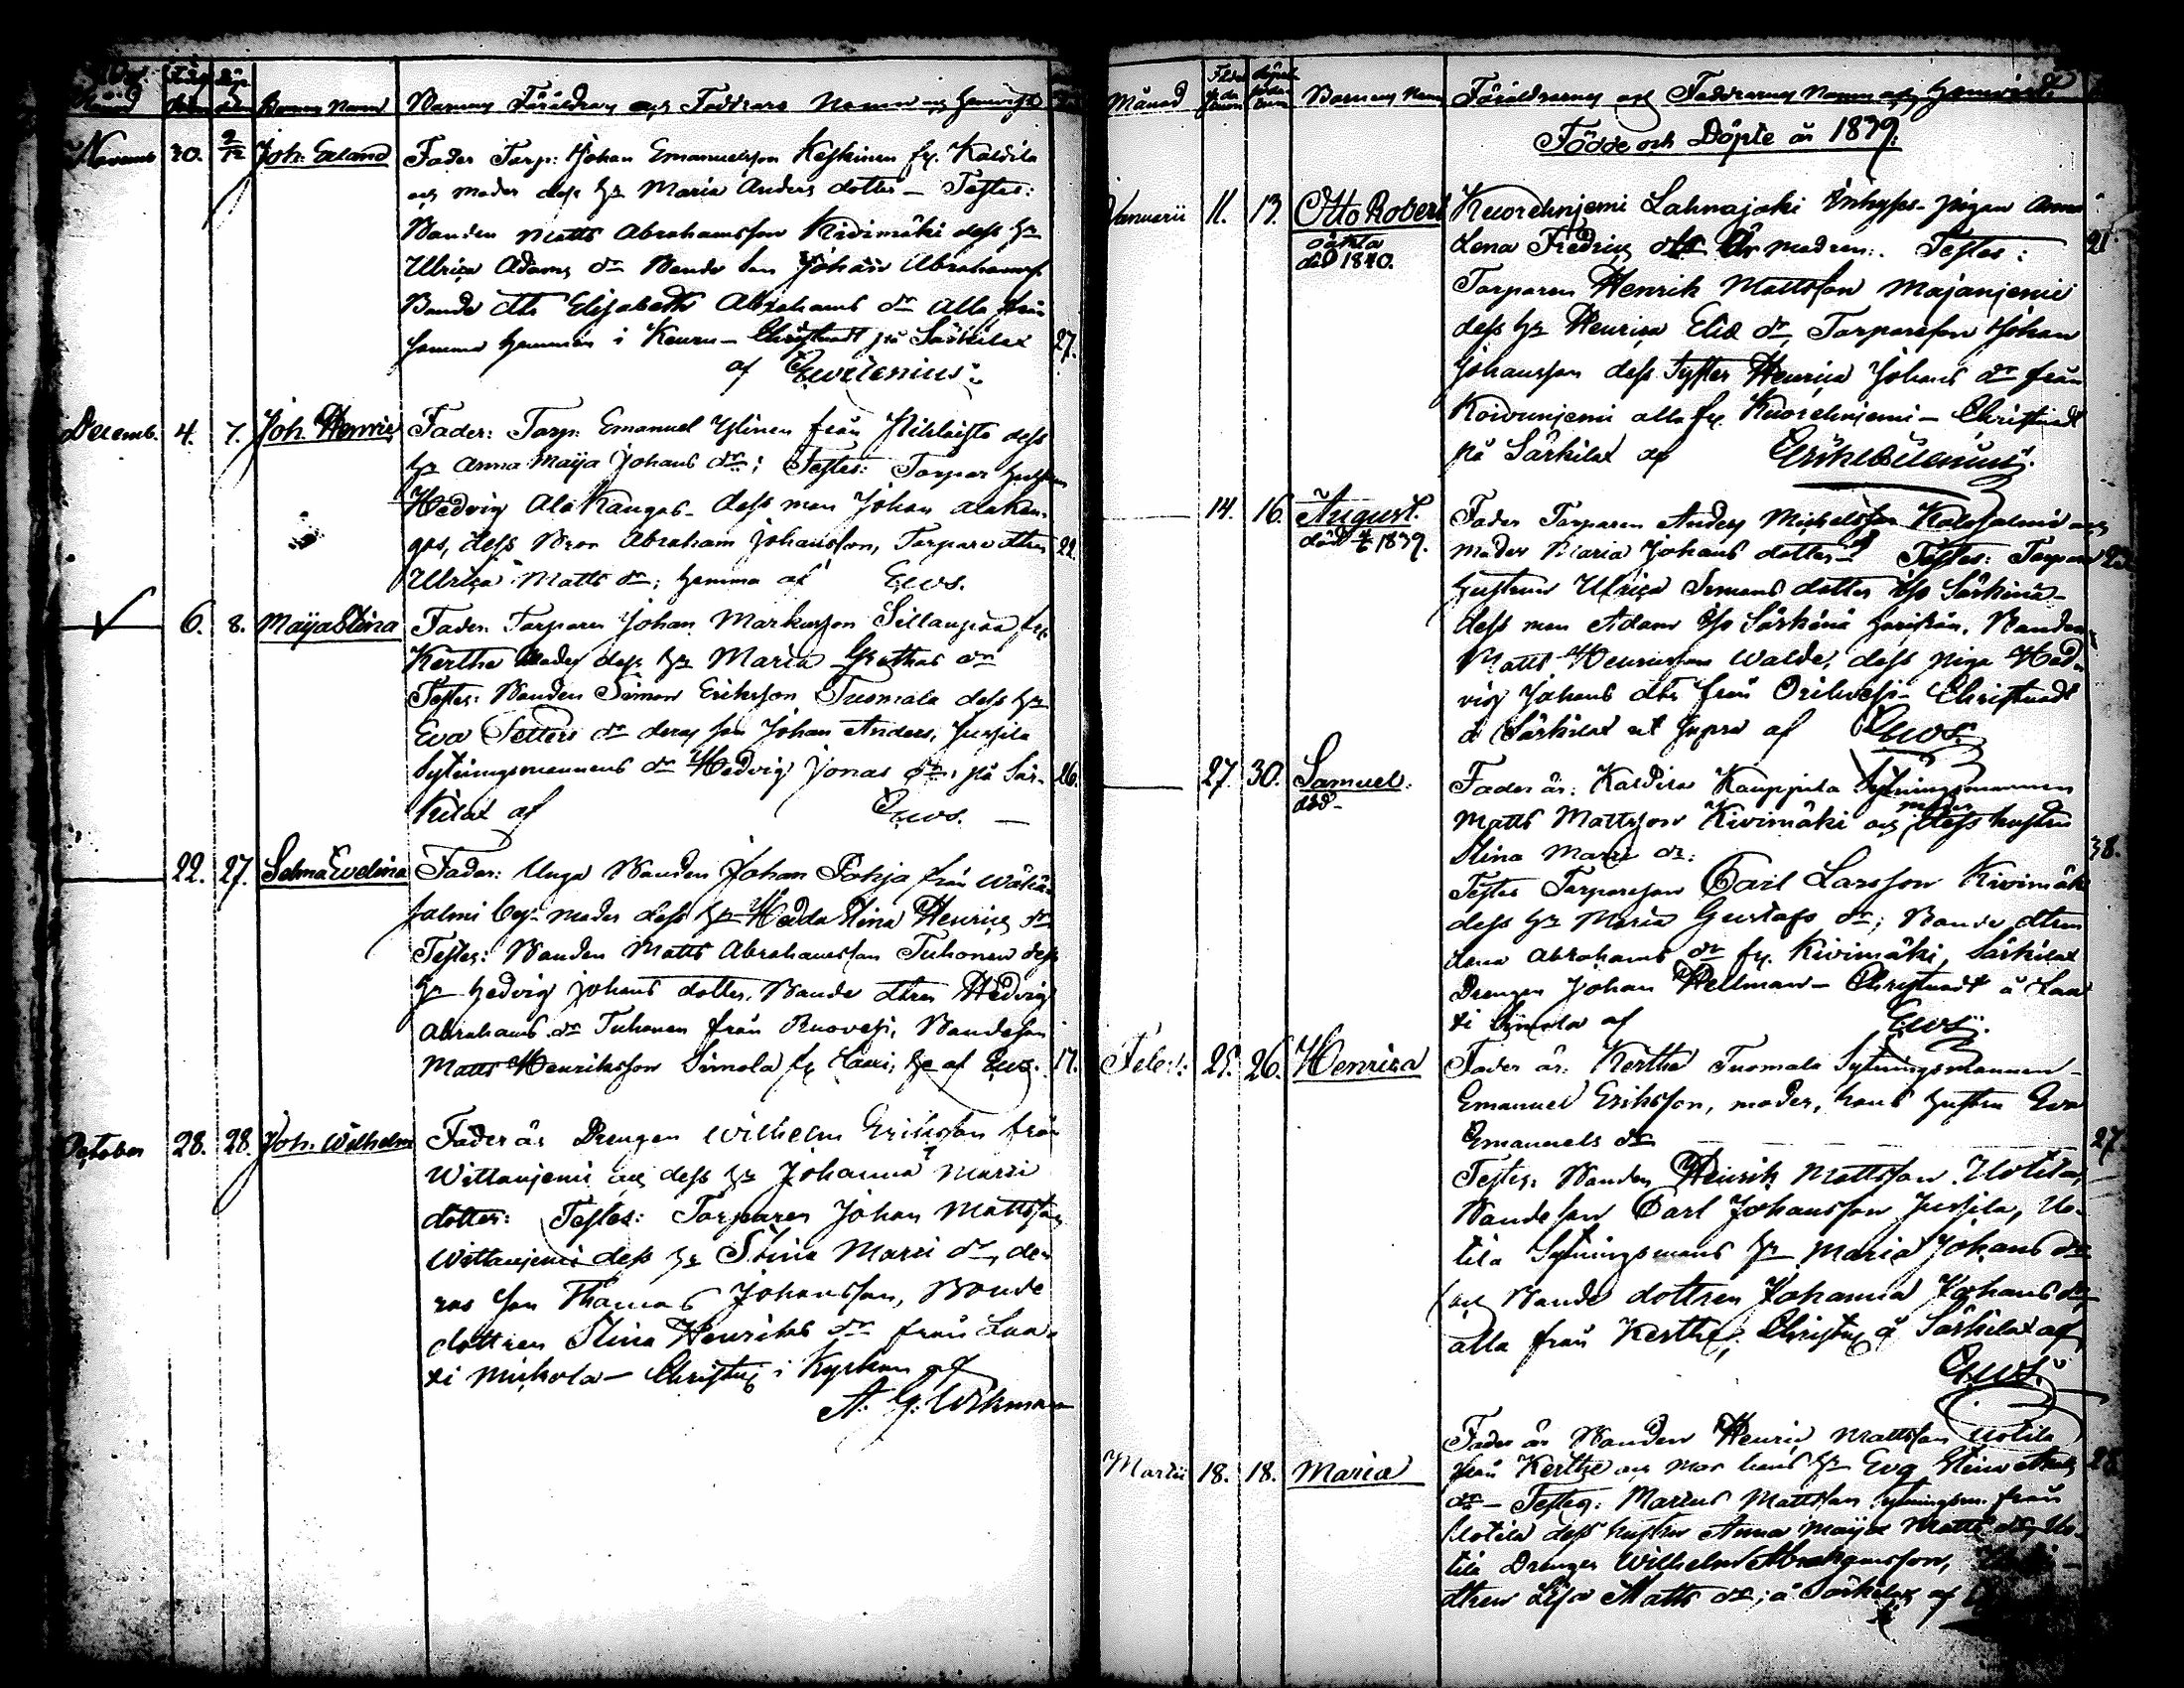 Barnens Namn Barnens Föräldrars och Faddrars Namn och Hemvist
Novemb 30. 2/12 Joh: Erland Fader Torp: Johan Emanuelsson Keskinen fr. Kaldila
och moder dess h:u Maria Anders dotter — Testes:
Bonden Matts Abrahamsson Kivimäki dess h:u
Ulrica Adams dr Bonde son Johan Abrahamss.
Bonde dtr Elisabeth Abrahams dr alla från
samma hemman i Keuru — Christnadt på Särkilax 27.
af
Decemb. 4. 7. Joh. Henric Fader: Torp: Emanuel Ylinen från dess
h:u Anna Maija Johans dr: Testes: Torpar hustrun
Hedvig Alakangas — dess man Johan Alakan-
gas, dess Bror Abraham Johansson, Torpare dtren 22.
Ulrica Matts dr; hemma af Ews.
6. 8. Maija Stina Fader Torparen Johan Markusson Sillanpää fr.
Kerthe Moder dess h:u Maria dr
Testes: Bonden Simon Eriksson Tuomala dess h:u
Eva Petters dr deras son Johan Anders, Jussila
Sytningsmannens dr Hedvig Jonas dr: på Sär- 26.
kilax af Ews. —
22. 27. Selma Evelina Fader: Unga Bonden Johan Pohja från
salmi by — moder dess h:u Hedda Stina Henrics dr
Testes: Bonden Matts Abrahamsson Tuhonen dess
h:u Hedvig Johans dotter. Bonde dtren Hedvig
Abrahams dr Tuhonen från Ruovesi, Bondeson
Matts Henriksson Simola fr af Ews. 17.
October 28. 28. Joh. Wilhelm Fader är Drengen Wilhelm Eriksson från
Wittaniemi och dess h:u Johanna Marci
dotter: Testes: Torparen Johan Mattsson
Wittaniemi dess h:u Stina Marci dr, de-
ras son Thomas Johansson, Bonde
dottren Stina Henriks dr från Laa-
xi Mickola — Christn i Kyrkan af
A. G. Wikman
Månad Barnens Namn Föräldrarnes och Faddrarnes Namn och Hemvist.
Födde och Döpte år 1839.
Januarii 11. 13. Otto Robert Lahnajoki Inhyses pigan Anna
oäkta Lena Fredrics dtr är modren:. Testes: 21.
död 1840.
Torparen Henrik Mattsson Majaniemi
dess h:u Henrica Elia dr, Torpareson Johan
Johansson dess Syster Henrica Johans dr från
Koivuniemi alla fr. — Christnadt
på Särkilax af
14. 16. August. Fader Torparen Anders Michelsson Kalosalmi och
död 1839. moder Maria Johans dotter — Testes: Torpare
hustrun Ulrica Simons dotter Iso Särkinä —
dess man Adam Iso Särkinä härifrån. Bonden
Matts Henricsson Walde, dess piga Hed-
vig Johans dtr från Orihvesi — Christnadt
å Särkilax ut supra af Ews.
27. 30. Samuel. Fader är: Kaldila Kauppila Sytningsmannen
död — Matts Mattsson Kivimäki och moder dess hustru
Stina Marci dr: 38.
Testes Torpareson Carl Larsson Kivimäki
dess h:u Maria Gustafs dr; Bonde dtren
Lena Abrahams dr fr. Kivimäki, Särkilax
Drengen Johan Hellman — Christnadt å Laa
xi Simola af Ews.
Febr: 25. 26. Henrica Fader är: Kerthe Tuomala Sytningsmannen —
Emanuel Eriksson, moder, hans hustru Eva
Emanuels dr 27.
Testes: Bonden Henrik Mattsson Uotila,
Bondeson Carl Johansson Jussila, Uo-
tila Sytningsmans h:u Maria Johans dr
och Bonde dottren Johanna Johans dr,
alla från Kerthe; Christn å Särkilax af
Ews.
Martii 18. 18. Maria Fader är Bonden Henric Mattsson Uotila
från Kerthe och mor hans h:u Eva Stina 28.
dr — Testes: Marcus Mattsson Sytningsm. från
Uotila dess hustru Anna Maija Matts dr, Uo-
tila Drengen Wilhelm Abrahamsson,
dtren Lisa Matts dr; å Särkilax af